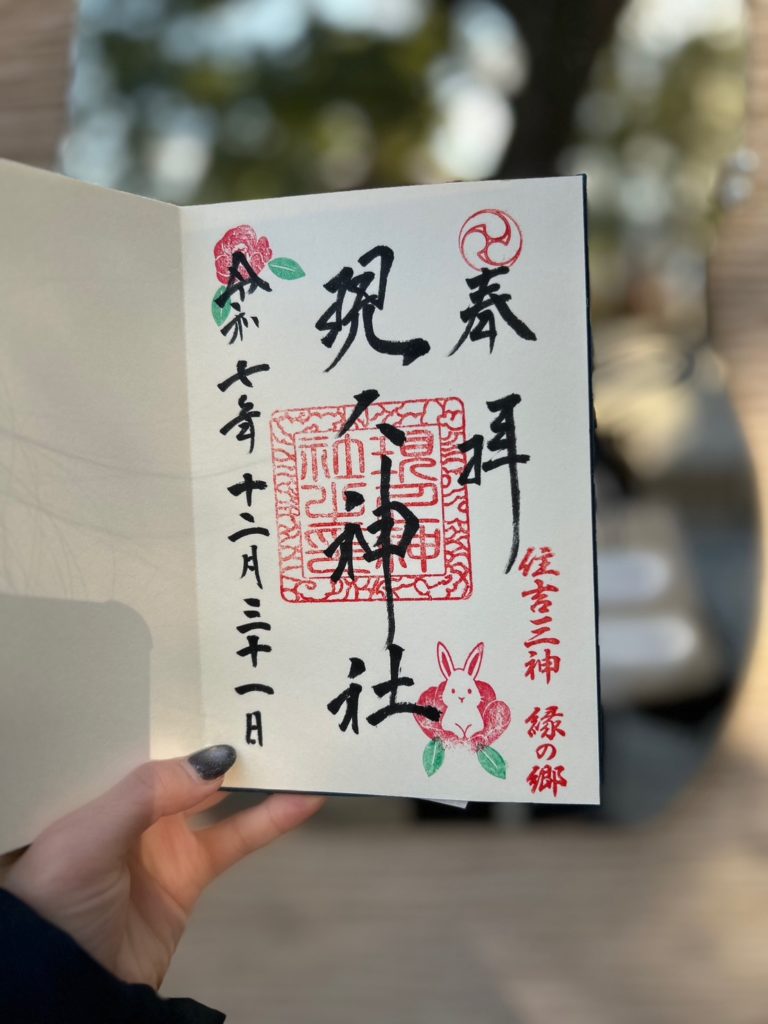 奉拝
住吉三神 縁の郷
現人神社
現人神社之印
令和七年十二月三十一日